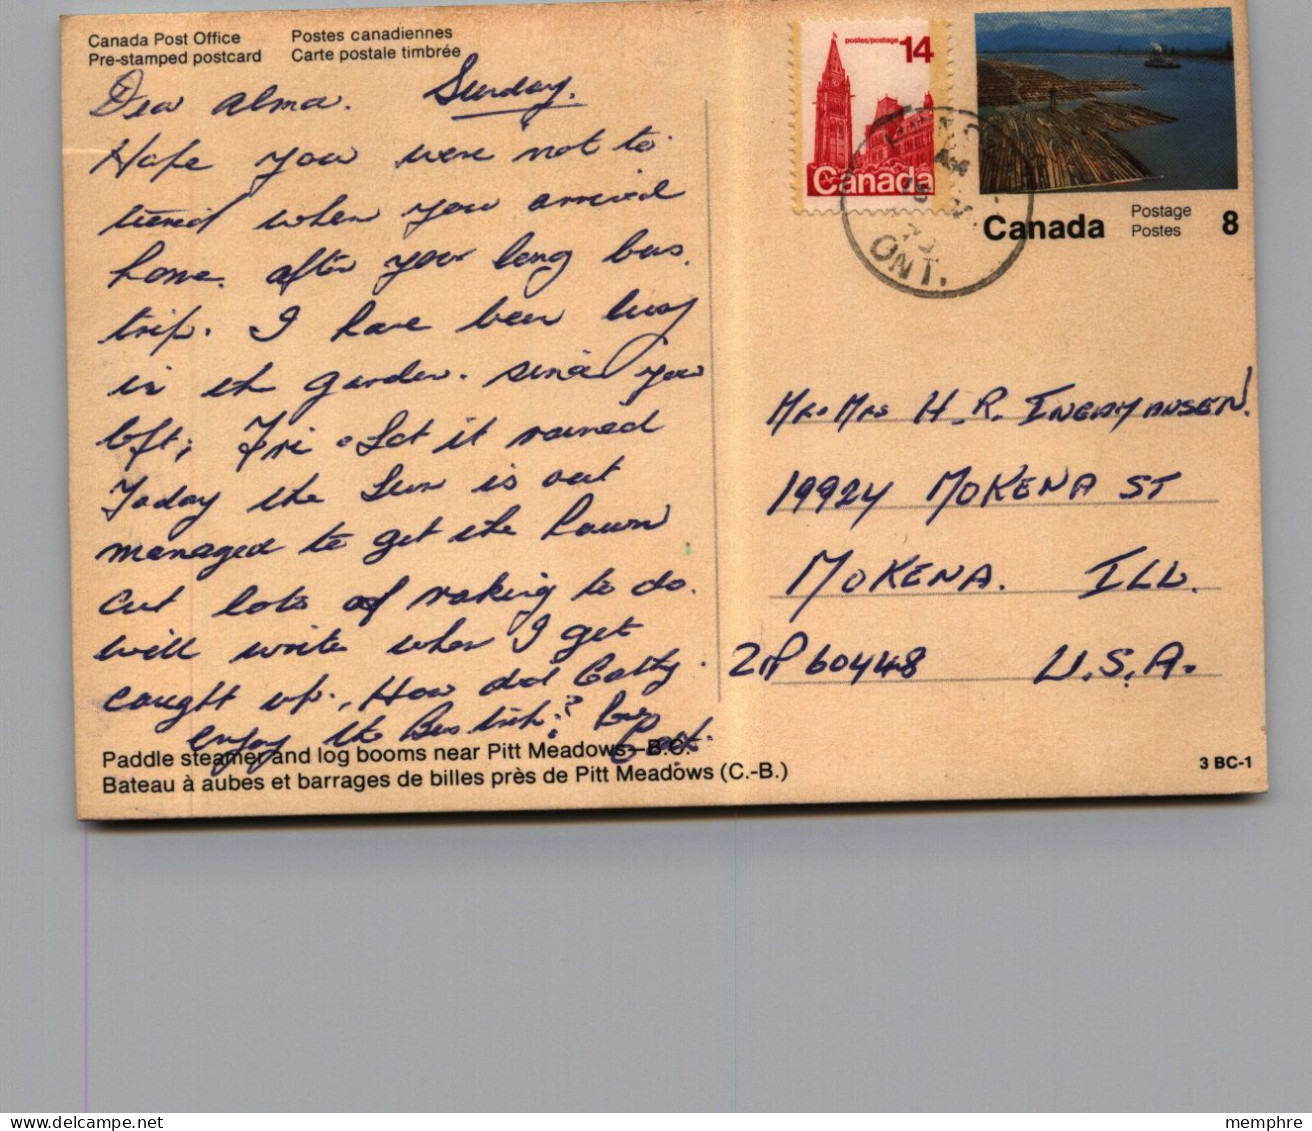 Canada Post Office
Pre-stamped postcard
Postes canadiennes
Carte postale timbrée
Dear Alma. Sunday.
Hope you were not to
tiered when you arrived
home. after your long bus.
trip. I have been busy
in the garden. since you
left; Fri & Sat it rained
Today the Sun is out
managed to get the Lawn
cut lots of raking to do.
will write when I get
caught up. How did Cathy.
enjoy the Bus trip.? Love
Paddle steamer and log booms near Pitt Meadows—B.C.
Bateau à aubes et barrages de billes près de Pitt Meadows (C.-B.)
postes/postage 14
Canada
Canada Postage
Postes 8
AM
ONT.
Mr. Mrs H. R. INGERMANSEN.
19924 MOKENA ST
MOKENA. ILL.
ZIP 60448 U.S.A.
3 BC-1
memphre